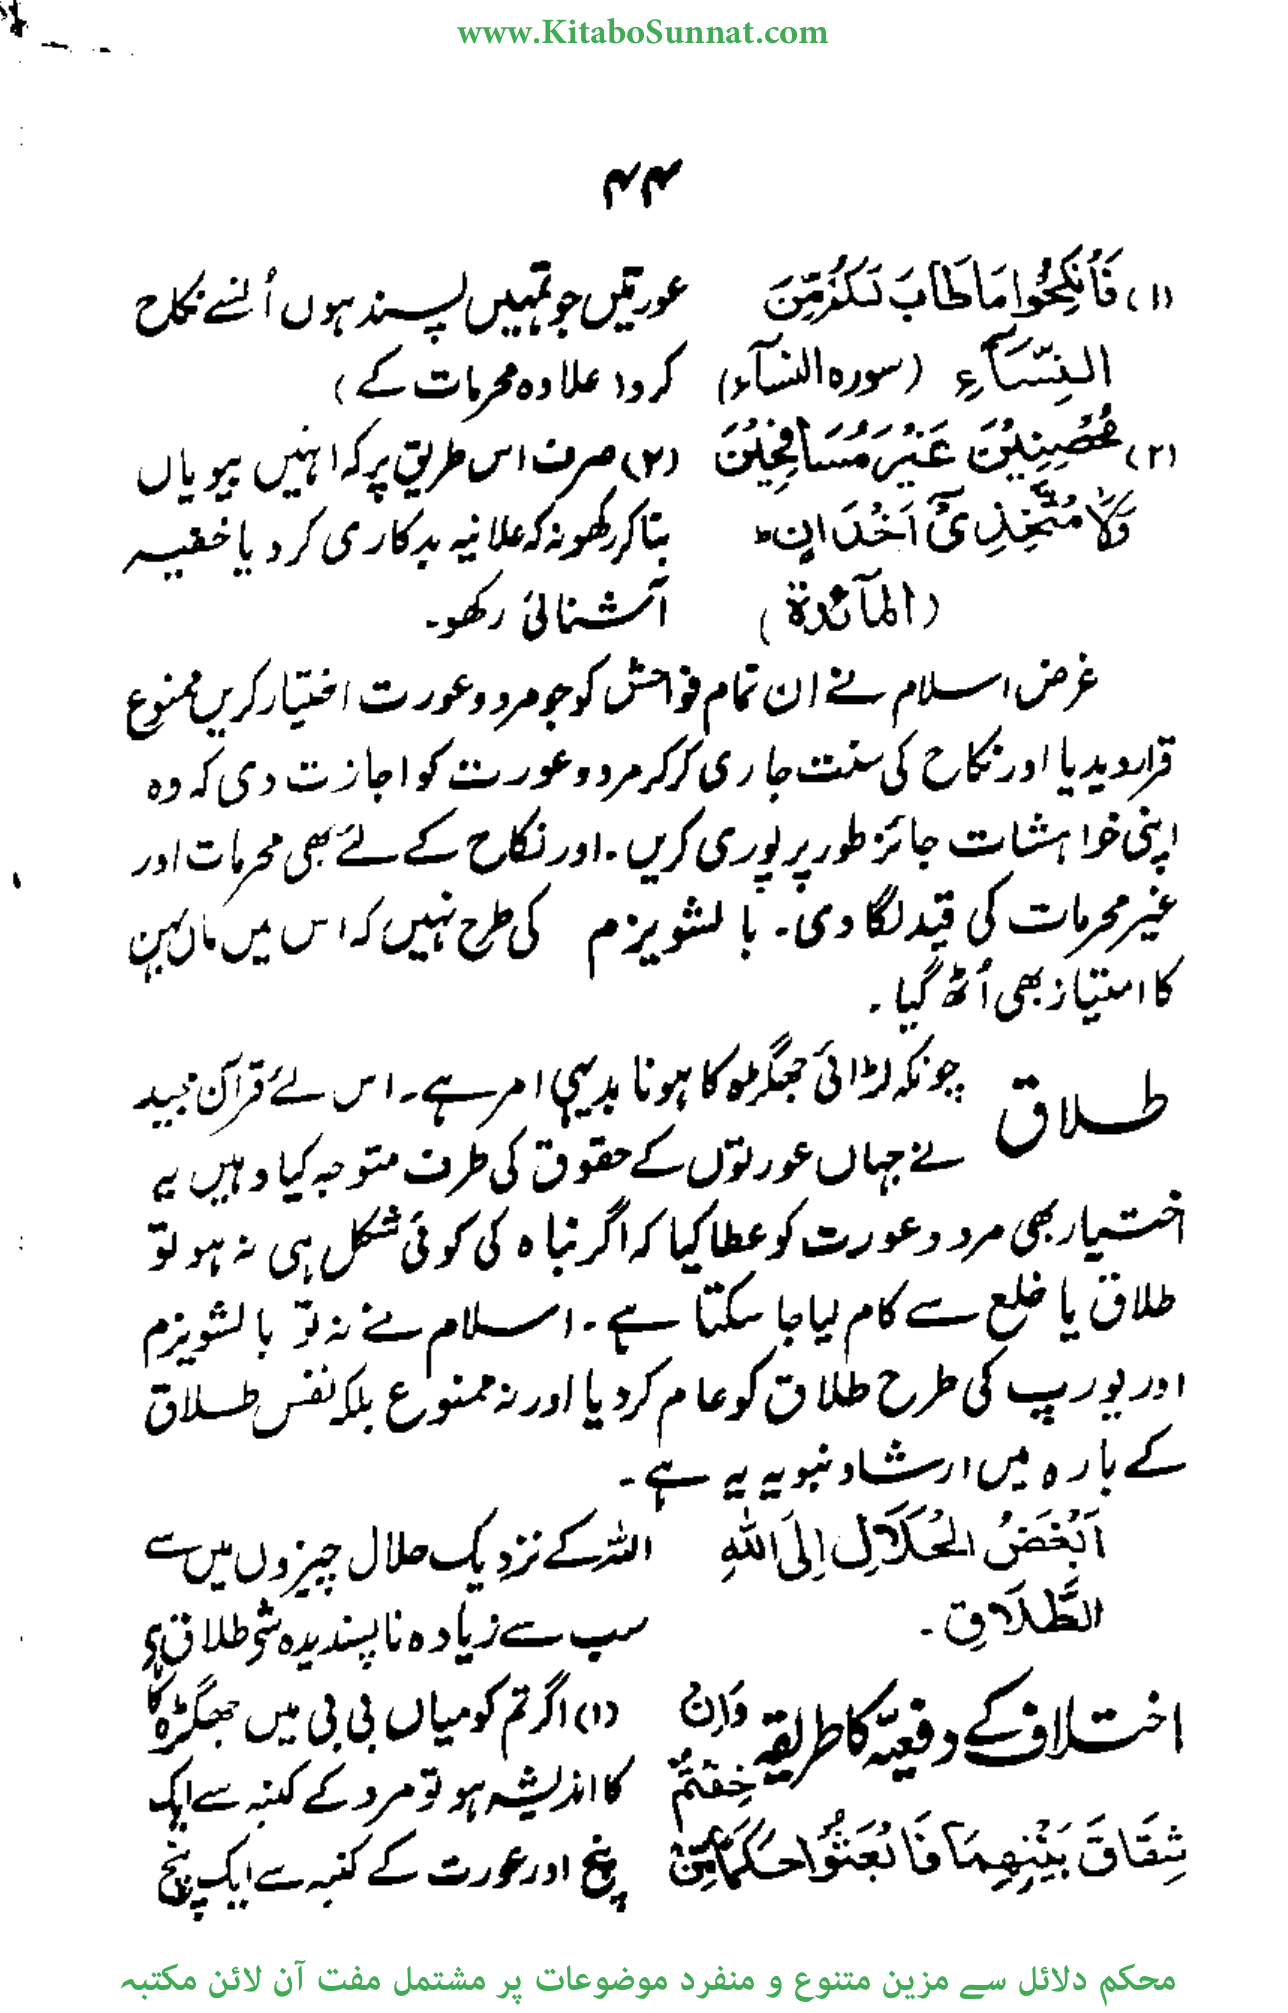 www.KitaboSunnat.com
۴۴
(۱) فَانْكِحُوا مَا طَابَ لَكُمْ مِّنَ عورتیں جو تمہیں پسند ہوں اُنسے نکاح
النِّسَآءِ (سورہ النسآء) کرو (علاوہ محرمات کے)
(۲) مُحْصِنِيْنَ غَيْرَ مُسَافِحِيْنَ (۲) صرف اس طریق پر کہ انہیں بیویاں
وَلَا مُتَّخِذِىْٓ اَخْدَانٍ ط بنا کر رکھو نہ کہ علانیہ بدکاری کرو یا خفیہ
(المآئدة) آشنائی رکھو۔
غرض اسلام نے ان تمام فواحش کو جو مرد و عورت اختیار کریں ممنوع
قرار دیدیا اور نکاح کی سنت جاری کر کر مرد و عورت کو اجازت دی کہ وہ
اپنی خواہشات جائز طور پر پوری کریں۔ اور نکاح کے لئے بھی محرمات اور
غیر محرمات کی قید لگا دی۔ بالشویزم کی طرح نہیں کہ اس میں ماں بہن
کا امتیاز بھی اُٹھ گیا۔
طلاق چونکہ لڑائی جھگڑہ کا ہونا بدیہی امر ہے۔ اس لئے قرآن مجید
نے جہاں عورتوں کے حقوق کی طرف متوجہ کیا وہیں یہ
اختیار بھی مرد و عورت کو عطا کیا کہ اگر نباہ کی کوئی شکل ہی نہ ہو تو
طلاق یا خلع سے کام لیا جا سکتا ہے۔ اسلام نے نہ تو بالشویزم
اور یورپ کی طرح طلاق کو عام کر دیا اور نہ ممنوع بلکہ نفس طلاق
کے بارہ میں ارشاد نبویہ یہ ہے۔
اَبْغَضُ الْحَلَالِ اِلَى اللهِ اللہ کے نزدیک حلال چیزوں میں سے
الطَّلَاقِ۔ سب سے زیادہ ناپسندیدہ شے طلاق ہے
اختلاف کے دفعیّہ کا طریقہ وَاِنْ (۱) اگر تم کو میاں بی بی میں جھگڑہ کا
خِفْتُمْ کا اندیشہ ہو تو مرد کے کنبہ سے ایک
شِقَاقَ بَيْنِهِمَا فَابْعَثُوْا حَكَمًا مِّنْ پنچ اور عورت کے کنبہ سے ایک پنچ
محکم دلائل سے مزین متنوع و منفرد موضوعات پر مشتمل مفت آن لائن مکتبہ